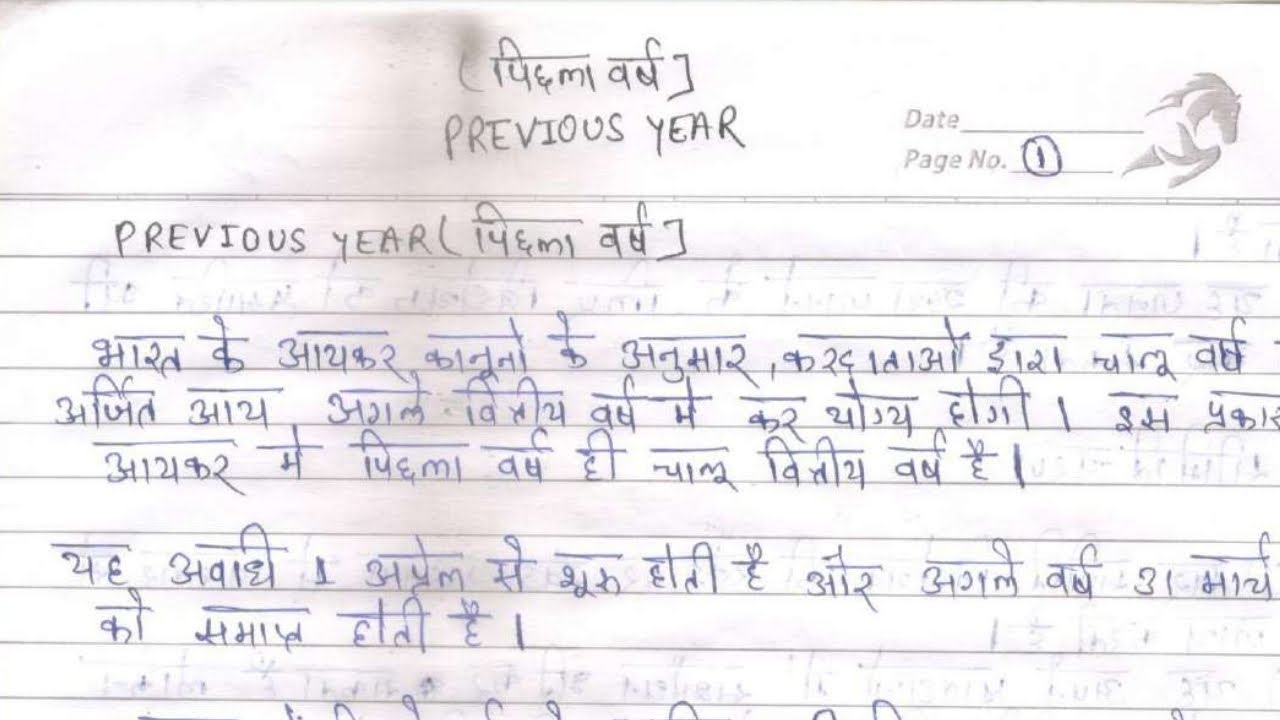 (पिछला वर्ष]
PREVIOUS YEAR
Date
Page No. 1
PREVIOUS YEAR (पिछला वर्ष]
भारत के आयकर कानूनो के अनुसार, करदाताओं द्वारा चालू वर्ष
अर्जित आय अगले वित्तीय वर्ष मे कर योग्य होगी । इस प्रकार
आयकर मे पिछला वर्ष ही चालू वित्तीय वर्ष है ।
यह अवधि 1 अप्रेल से शुरू होती है और अगले वर्ष 31 मार्च
को समाप्त होती है ।